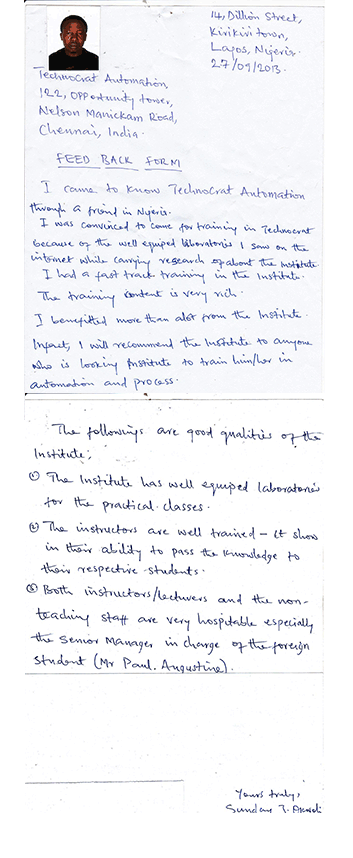 14, Dillion Street,
Kirikiri town,
Lagos, Nigeria.
27/09/2013.
Technocrat Automation,
122, Opportunity tower,
Nelson Manickam Road,
Chennai, India.
FEED BACK FORM
I came to know Technocrat Automation
through a friend in Nigeria.
I was convinced to come for training in Technocrat
because of the well equiped laboratories I saw on the
internet while carrying research of about the Institute.
I had a fast track training in the Institute.
The training content is very rich.
I benefitted more than alot from the Institute.
Infact, I will recommend the Institute to anyone
who is looking Institute to train him/her in
automation and process.
The followings are good qualities of the
Institute;
① The Institute has well equiped laboratories
for the practical classes.
② The instructors are well trained - it show
in their ability to pass the knowledge to
their respective students.
③ Both instructors/lecturers and the non-
teaching staff are very hospitable especially
the Senior Manager in charge of the foreign
student (Mr Paul. Augustine).
Yours truly,
Sunday T.